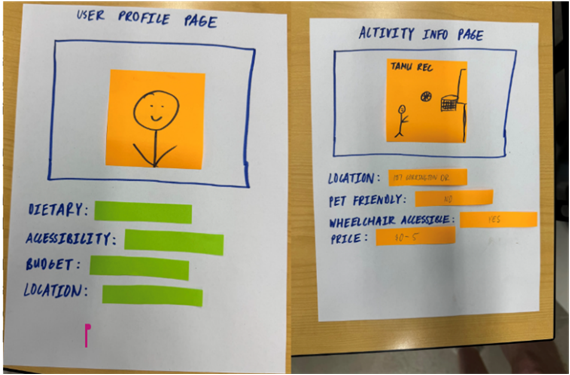 USER PROFILE PAGE
DIETARY:
ACCESSIBILITY:
BUDGET:
LOCATION:
ACTIVITY INFO PAGE
TAMU REC
LOCATION:
PET FRIENDLY: NO
WHEELCHAIR ACCESSIBLE: YES
PRICE: